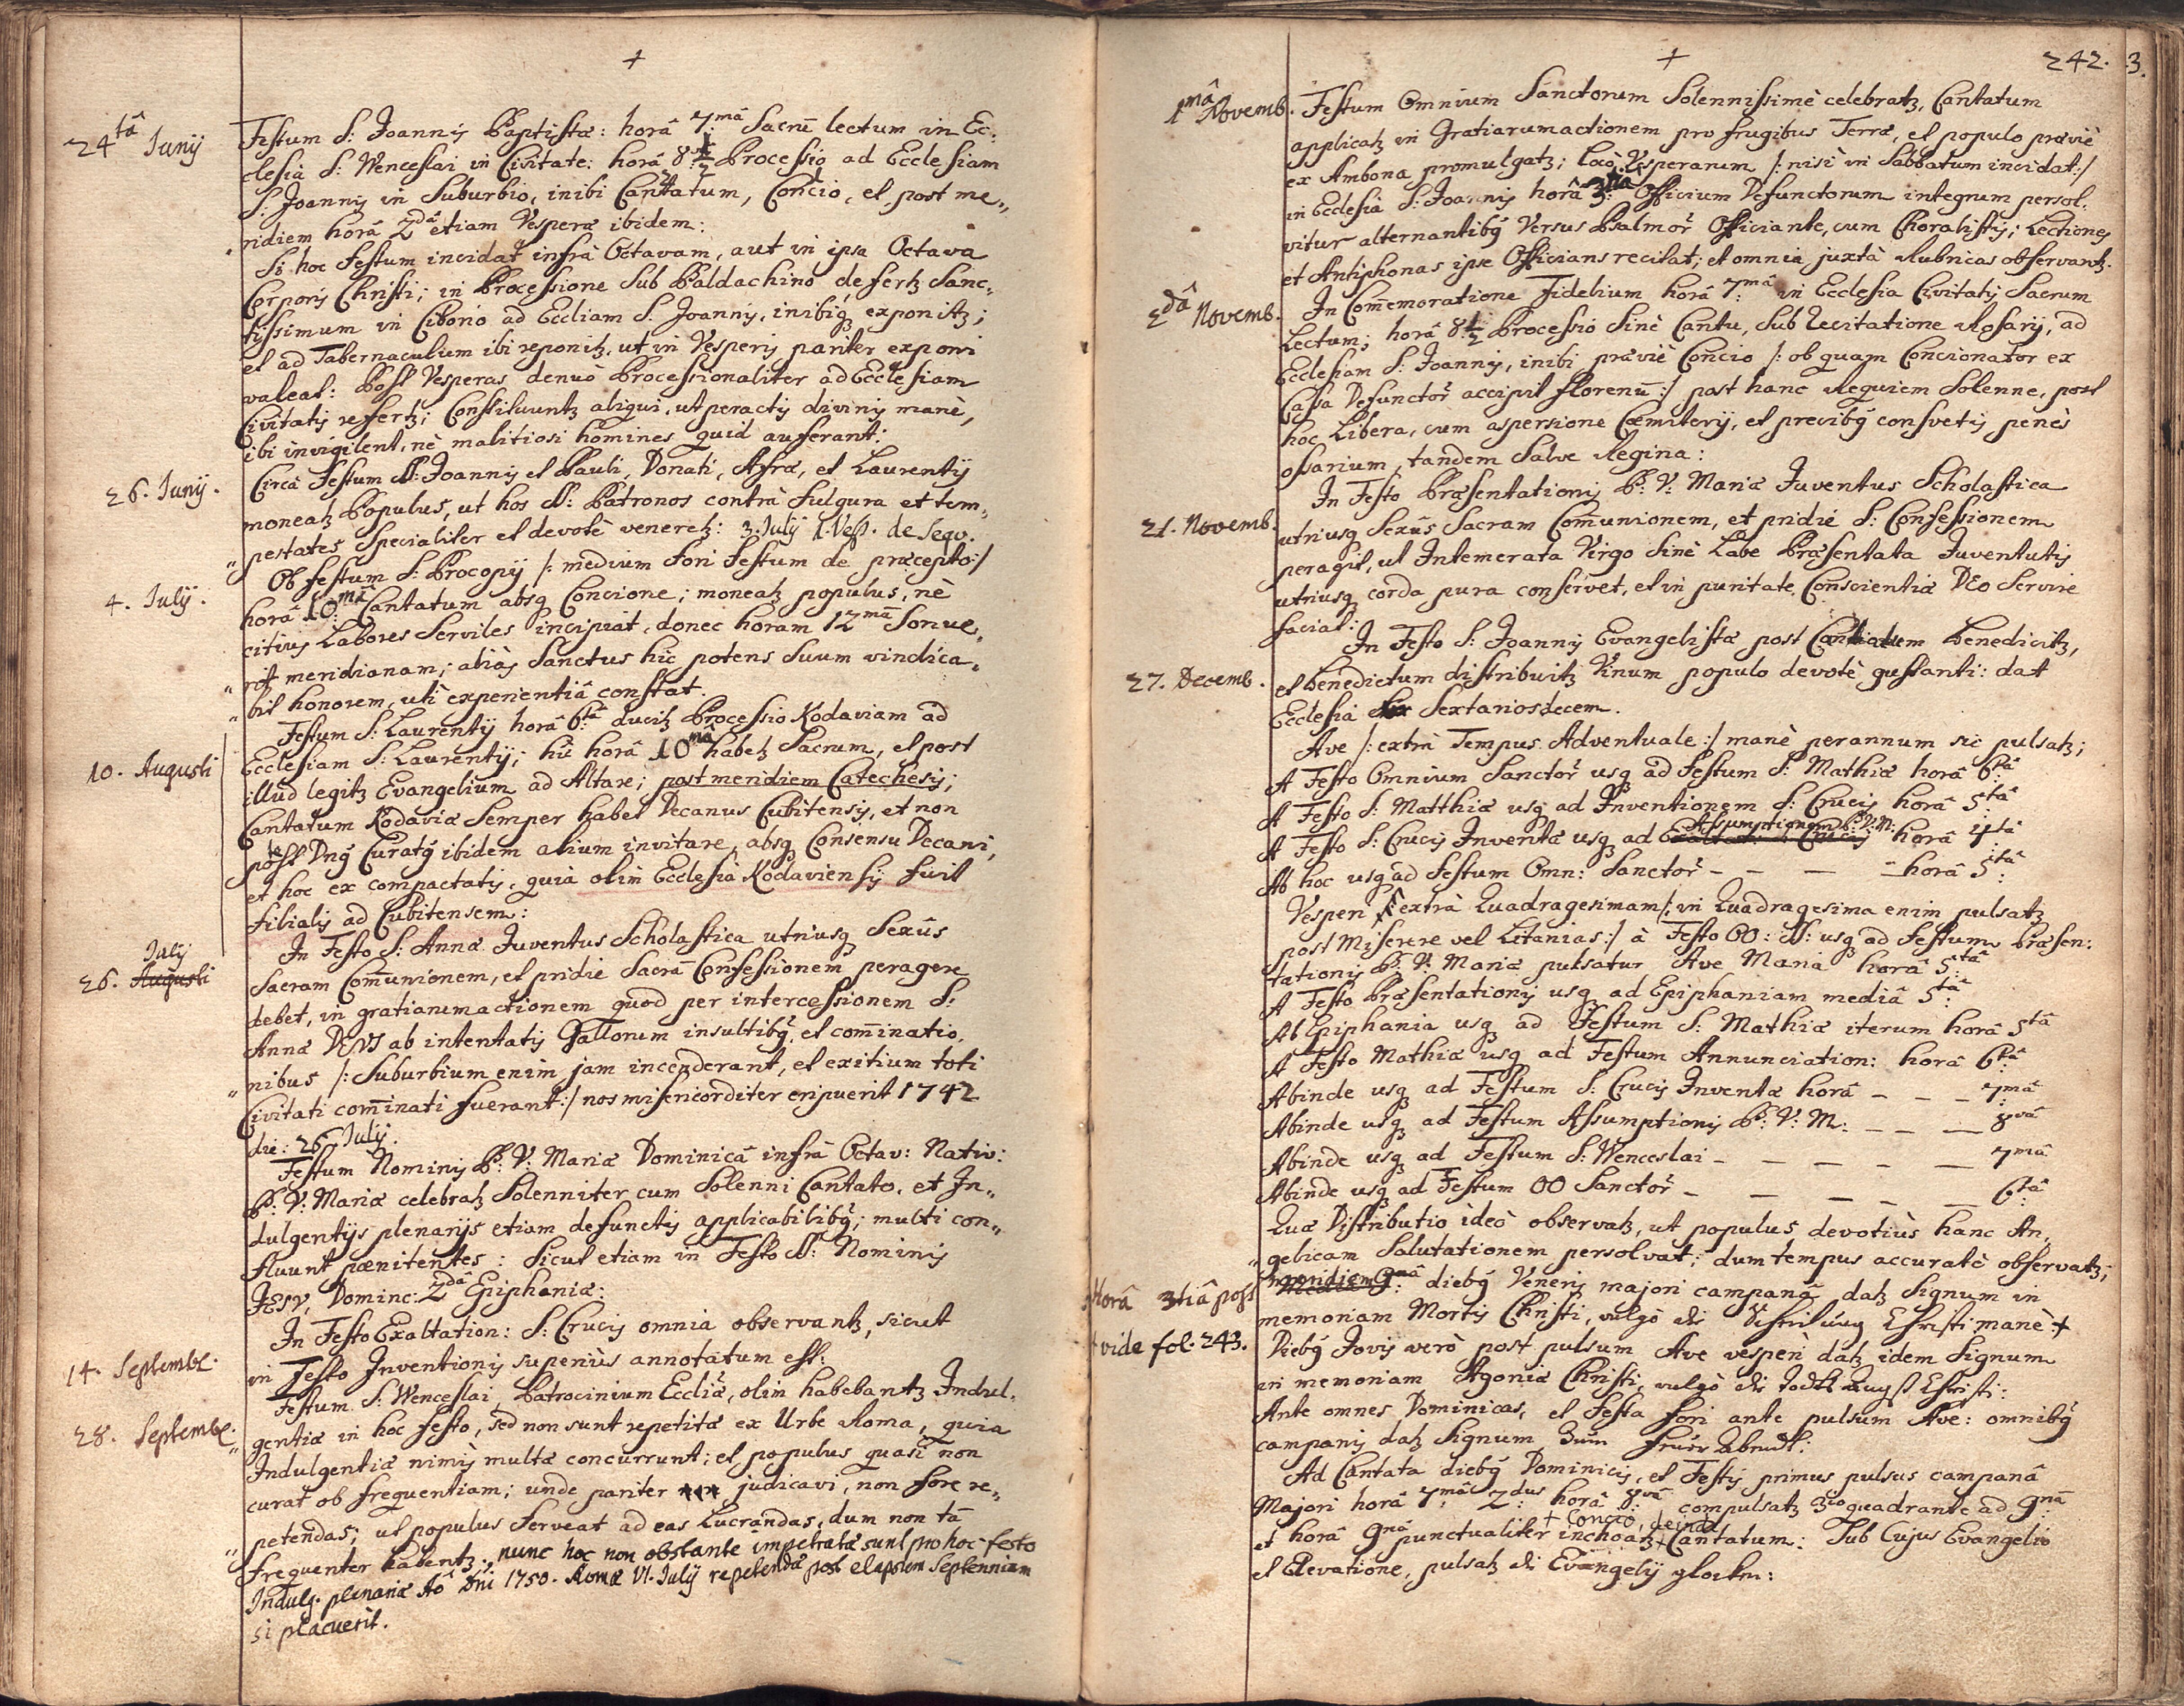 +
24tâ Junij
Festum S: Joannis Baptistæ: horâ 7mâ Sacrũ lectum in Ec:
clesiâ S: Wenceslai in Civitate: horâ 8½ Processio ad Ecclesiam
S: Joannis in Suburbio, inibi Cantatum, Concio, et post me„
ridiem horâ 2dâ etiam Vesperæ ibidem:
Si hoc Festum incidat infrà Octavam, aut in ipsa Octava
Corporis Christi; in Processione sub Baldachino defertꝫ Sanc„
tissimum in Cibono ad Eccliam S. Joannis, inibiqꝫ exponitꝫ;
et ad Tabernaculum ibi reponitꝫ, ut in Vesperis pariter exponi
valeat: Post Vesperas denuò Processionaliter ad Ecclesiam
Civitatis refertꝫ; Constituuntꝫ aliqui, ut peractis divinis manè,
ibi invigilent, nè malitiosi homines quid auferant:
26. Junij.
Circà Festum SS: Joannis et Pauli, Donati, Afræ, et Laurentij
moneatꝫ Populus, ut hos SS: Patronos contrà fulgura et tem„
„ pestates specialiter et devotè veneretꝫ: 3. Julij 1. Vesp. de Sequ.
4. Julij.
Ob festum S: Procopij /: medium Fori Festum de præcepto:/
horâ 10mâ Cantatum absqꝫ Concione; moneatꝫ populus, nè
citius Labores Serviles incipiat, donec horam 12mã Sonue„
„ rit meridianam; aliàs Sanctus hic potens Suum vindica„
„ bit honorem, uti experientiâ constat.
10. Augusti
Festum S: Laurentij horâ 6tâ ducitꝫ Processio Kodaviam ad
Ecclesiam S: Laurentij; hic horâ 10mâ habetꝫ Sacrum, et post
illud legitꝫ Evangelium ad Altare; post meridiem Catechesis;
Cantatum Kodaviæ semper habet Decanus Cubitensis, et non
potest Dnꝰ Curatꝰ ibidem alium invitare, absqꝫ Consensu Decani,
et hoc ex compactatis, quia olim Ecclesia Kodaviensis fuit
filialis ad Cubitensem:
Julij
26. Augusti
In Festo S: Annæ Juventus Scholastica utriusqꝫ Sexûs
Sacram Com̃unionem, et pridie Sacrã Confessionem peragere
debet, in gratiarumactionem quod per intercessionem S:
Annæ DEUS ab intentatis Gallorum insultibꝰ, et com̃inatio„
„ nibus /: Suburbium enim jam incenderant, et exitium toti
Civitati com̃inati fuerant:/ nos misericorditer eripuerit 1742
die: 26 Julij.
Festum Nominis B: V: Mariæ Dominicâ infrà Octav: Nativ:
B: V: Mariæ celebratꝫ Solenniter cum Solenni Cantato, et In„
dulgentijs plenarijs etiam defunctis applicabilibꝰ; multi con„
fluunt pœnitentes: Sicut etiam in Festo SS: Nominis
JESU, Dominc: 2dâ Epiphaniæ:
14. Septembr.
In Festo Exaltation: S: Crucis omnia observantꝫ, sicut
in Festo Inventionis superiùs annotatum est:
28. Septembr.
Festum S: Wenceslai, Patrocinium Eccliæ, olim habebantꝫ Indul„
„ gentiæ in hoc festo, sed non sunt repetitæ ex Urbe Roma, quia
Indulgentiæ nimis multæ concurrunt; et populus quasi non
curat ob frequentiam; unde pariter judicavi, non fore re„
„ petendas; ut populus ferveat ad eas Lucrandas, dum non tã
frequenter habentꝫ. nunc hoc non obstante impetratæ sunt pro hoc festo
Indulg. plenariæ Aô Dñi 1750. Romæ VI. Julij repetendæ post elapsum Septennium
si placuerit.
+
242. 3.
1mâ Novemb.
Festum Omnium Sanctorum Solennissimè celebratꝫ, Cantatum
applicatꝫ in Gratiarumactionem pro frugibus Terræ, et populo præviè
ex Ambona promulgatꝫ; locò Vesperarum /: nisi in Sabbatum incidat:/
in Ecclesia S: Joannis horâ 3tiâ Officium Defunctorum integrum persol„
vitur alternantibꝰ Versus Psalmoꝝ Officiante, cum Choralistis; Lectiones
et Antiphonas ipse Officians recitat; et omnia juxtà Rubricas observantꝫ.
2dâ Novemb.
In Com̃emoratione Fidelium horâ 7mâ in Ecclesia Civitatis Sacrum
Lectum; horâ 8½ Processio Sinè Cantu, sub Recitatione Rosarij, ad
Ecclesiam S: Joannis, inibi præviè Concio /: ob quam Concionator ex
Cassa Defunctoꝝ accipit florenũ:/ post hanc Requiem Solenne, post
hoc Libera, cum aspersione Cœmiterij, et precibꝰ consvetis penès
ossarium, tandem Salve Regina:
21. Novemb.
In Festo Præsentationis B: V: Mariæ Juventus Scholastica
utriusqꝫ Sexûs Sacram Com̃unionem, et pridie S: Confessionem
peragit, ut Intemerata Virgo Sinè Labe Præsentata Juventutis
utriusqꝫ corda pura conservet, et in puritate Conscientiæ DEo Servire
faciat:
27. Decemb.
In Festo S: Joannis Evangelistæ post Cantatum benedicitꝫ,
et benedictum distribuitꝫ Vinum populo devotè gustanti: dat
Ecclesia Sextarios decem.
Ave /: extrà Tempus Adventuale:/ manè per annum sic pulsatꝫ;
A Festo Omnium Sanctoꝝ usqꝫ ad Festum S: Mathiæ horâ 6tâ
A Festo S: Matthiæ usqꝫ ad Inventionem S: Crucis horâ 5tâ
Assumptionem B: V: M:
A Festo S: Crucis Inventæ usqꝫ ad Exaltat: S: Crucis horâ 4tâ
Ab hoc usqꝫ ad Festum Omn: Sanctoꝝ – – – – horâ 5tâ
Vesperi /: extrà Quadragesimam/: in Quadragesima enim pulsatꝫ
post Miserere vel Litanias:/ à Festo OO: SS: usqꝫ ad Festum Præsen:
tationis B: V: Mariæ pulsatur Ave Maria horâ 5tâ
A Festo Præsentationis usqꝫ ad Epiphaniam mediâ 5tâ
Ab Epiphania usqꝫ ad Festum S: Mathiæ iterum horâ 5tâ
A Festo Mathiæ usqꝫ ad Festum Annunciation: horâ 6tâ
Abinde usqꝫ ad Festum S: Crucis Inventæ horâ – – – 7mâ
Abinde usqꝫ ad Festum Assumptionis B: V: M: – – – 8vâ
Abinde usqꝫ ad Festum S: Wenceslai – – – – – 7mâ
Abinde usqꝫ ad Festum OO Sanctoꝝ – – – – – 6tâ
Quæ Distributio ideò observatꝫ, ut populus devotiùs hanc An„
„ gelicam Salutationem persolvat; dum tempus accuratè observatꝫ;
Horâ 3tiâ post meridiem
Mediâ 9nâ diebꝰ Veneris majori campanâ datꝫ Signum in
memoriam Mortis Christi, vulgò die Schridung Christi manè +
+ vide fol. 243.
Diebꝰ Jovis verò post pulsum Ave vesperi datꝫ idem Signum
in memoriam Agoniæ Christi, vulgò die Todts Angst Christi:
Ante omnes Dominicas, et Festa fori ante pulsum Ave: omnibꝰ
campanis datꝫ Signum Zum Feuer Abendt:
Ad Cantata diebꝰ Dominicis, et Festis primus pulsus campanâ
Majori horâ 7mâ 2dus horâ 8vâ compulsatꝫ 3io quadrante ad 9nã
+ Concio, deinde
et horâ 9nâ punctualiter inchoatꝫ + Cantatum: Sub Cujus Evangelio
et Elevatione, pulsatꝫ die Evangelij glocken: